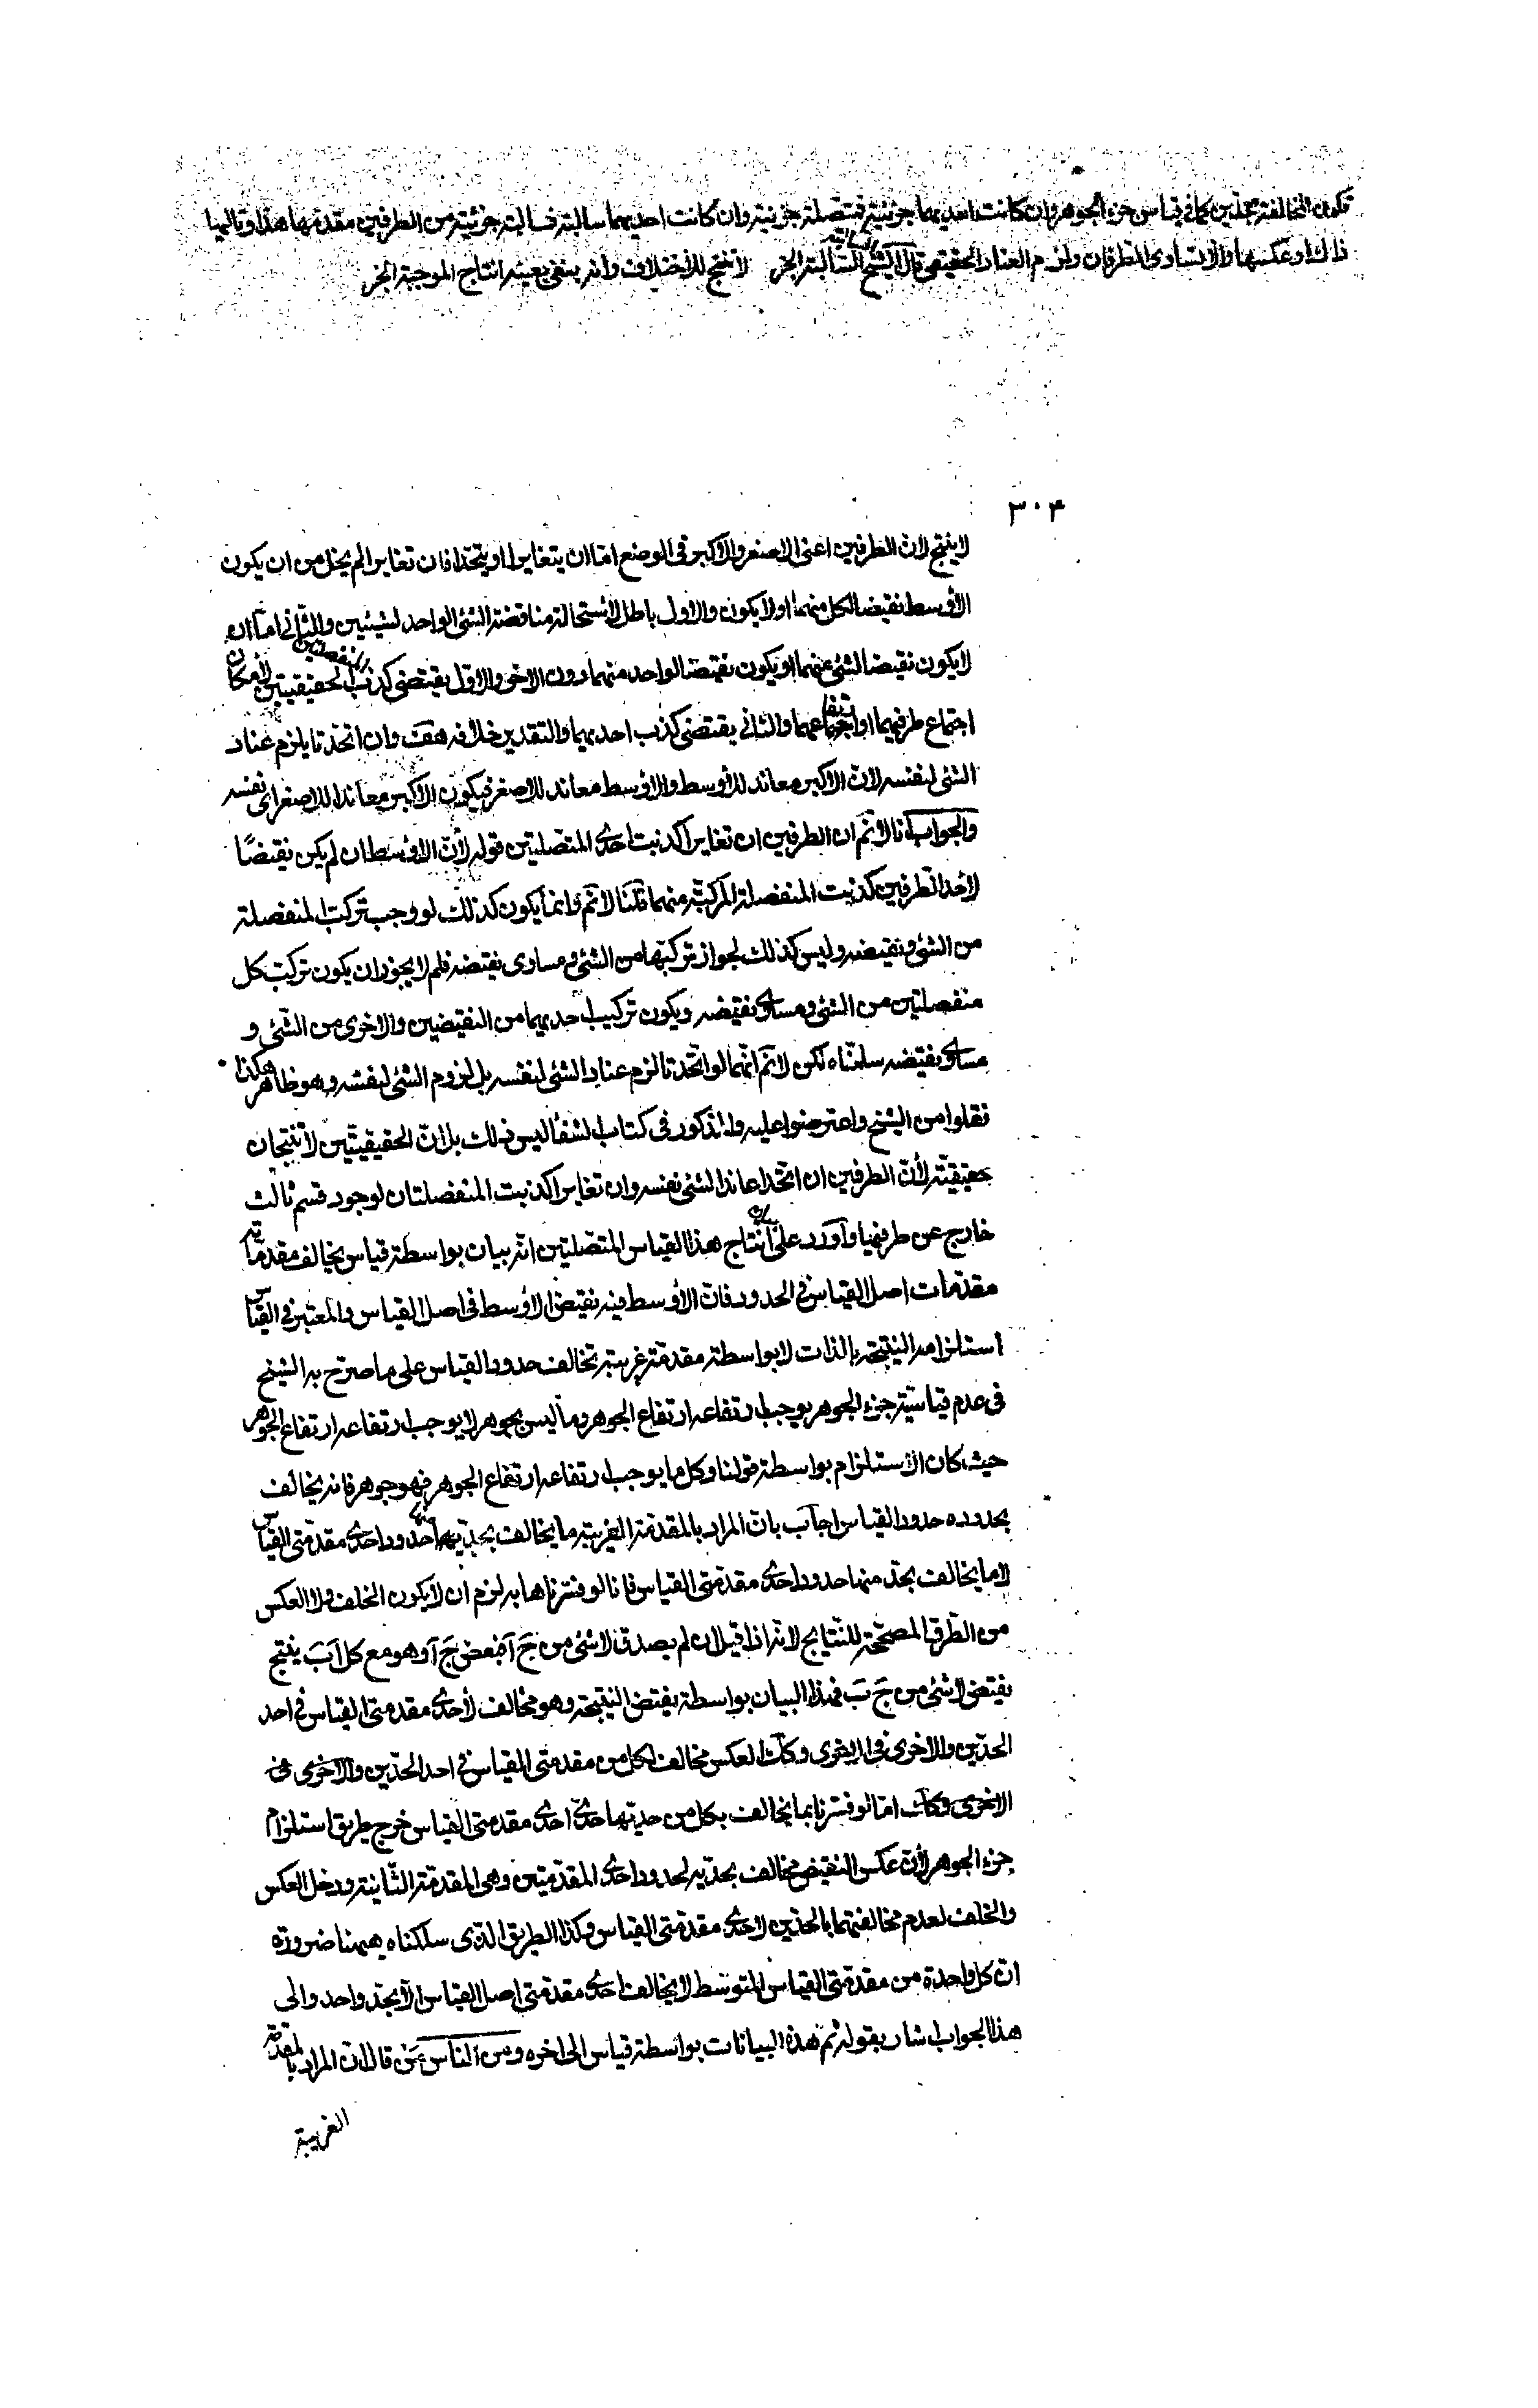 تكون المخالفة بحدين كما في قياس جزء الجوهر وان كانت احديهما جزئية فمتصلة جزئية وان كانت احديهما سالبة فسالبة جزئية من الطرفين مقدمها هذا وتاليها
ذاك او عكسها والا تساوى الطرفان ولزم العناد الحقيقى قال الشيخ السالبة الجز لا تنتج للاختلاف وانه ينفى بعينه انتاج الموجبة الجز
٣٠۴
لا ينتج لان الطرفين اعنى الاصغر والاكبر فى الوضع اما ان يتغايرا او يتحدا فان تغايرا لم يخل من ان يكون
الأوسط نقيضا لكل منهما او لا يكون والاول باطل لاستحالة مناقضة الشئ الواحد لشيئين والثانى اما ان
لا يكون نقيضا لشئ منهما او يكون نقيضا لواحد منهما دون الاخر والاول يقتضى كذب المنفصلتين الحقيقيتين لامكان
اجتماع طرفيهما او ارتفاعهما والثانى يقتضى كذب احديهما والتقدير خلافه هف وان اتحدتا يلزم عناد
الشئ لنفسه لان الاكبر معاند للأوسط والاوسط معاند للاصغر فيكون الاكبر معاندا للاصغر اى نفسه
والجواب انا لا نم ان الطرفين ان تغايرا كذبت احدى المتصلتين قوله لأن الاوسط ان لم يكن نقيضًا
لأحد الطرفين كذبت المنفصلة المركبة منهما قلنا لا نم وانما يكون كذلك لو وجب تركب المنفصلة
من الشئ ونقيضه وليس كذلك لجواز تركبها من الشئ ومساوى نقيضه فلم لا يجوز ان يكون تركب كل
منفصلتين من الشئ ومساوى نقيضه ويكون تركيب احديهما من النقيضين والاخرى من الشئ و
مساوى نقيضه سلمناه لكن لا نم انهما لو اتحدتا لزم عناد الشئ لنفسه بل لزوم الشئ لنفسه وهو ظاهر هكذا
نقلوا من الشيخ واعترضوا عليه والمذكور فى كتاب الشفأ ليس ذلك بل ان الحقيقيتين لا تنتجان
حقيقيّة لأن الطرفين ان اتحدا عاند الشئ نفسه وان تغايرا كذبت المنفصلتان لوجود قسم ثالث
خارج عن طرفيهما واورد على بيان انتاج هذا القياس المتصلتين انه بيان بواسطة قياس يخالف مقدماته
مقدمات اصل القياس فى الحدود فان الأوسط فيه نقيض الاوسط فى اصل القياس والمعتبر فى القياس
استلزامه النتيجة بالذات لا بواسطة مقدمة غريبة تخالف حدود القياس على ما صرح به الشيخ
فى عدم قياسية جزء الجوهر يوجب ارتفاعه ارتفاع الجوهر وما ليس بجوهر لا يوجب ارتفاعه ارتفاع الجوهر
حيث كان الاستلزام بواسطة قولنا وكل ما يوجب ارتفاعه ارتفاع الجوهر فهو جوهر فانه يخالف
بحدوده حدود القياس اجاب بان المراد بالمقدمة الغريبة ما يخالف بحديها حدود احدى مقدمتى القياس
لا ما يخالف بحد منها حدود احدى مقدمتى القياس فانا لو فسرناها به لزم ان لا يكون الخلف ولا العكس
من الطرق المصححة للنتايج لانه اذا قيل ان لم يصدق لا شئ من ج آ فبعض ج آ وهو مع كل آ ب ينتج
نقيض لا شئ من ج ب فهذا البيان بواسطة نقيض النتيجة وهو مخالف لأحدى مقدمتى القياس فى احد
الحدّين والاخرى فى الاخرى وكذا العكس مخالف لكل من مقدمتى القياس فى احد الحدّين والاخرى فى
الاخرى وكذا اما لو فسرنا بما يخالف بكل من حديها حدى احدى مقدمتى القياس خرج طريق استلزام
جزء الجوهر لأن عكس النقيض مخالف بحديه لحدود احدى المقدمتين وهى المقدمة الثانية ودخل العكس
والخلف لعدم مخالفتهما بالحدين لاحدى مقدمتى القياس وكذا الطريق الذى سلكناه ههنا ضرورة
ان كل واحدة من مقدمتى القياس المتوسط لا يخالف احدى مقدمتى اصل القياس الا بحد واحد والى
هذا الجواب اشار بقوله ثم هذه البيانات بواسطة قياس الى اخره ومن الناس من قال ان المراد بالمقدمة
الغريبة